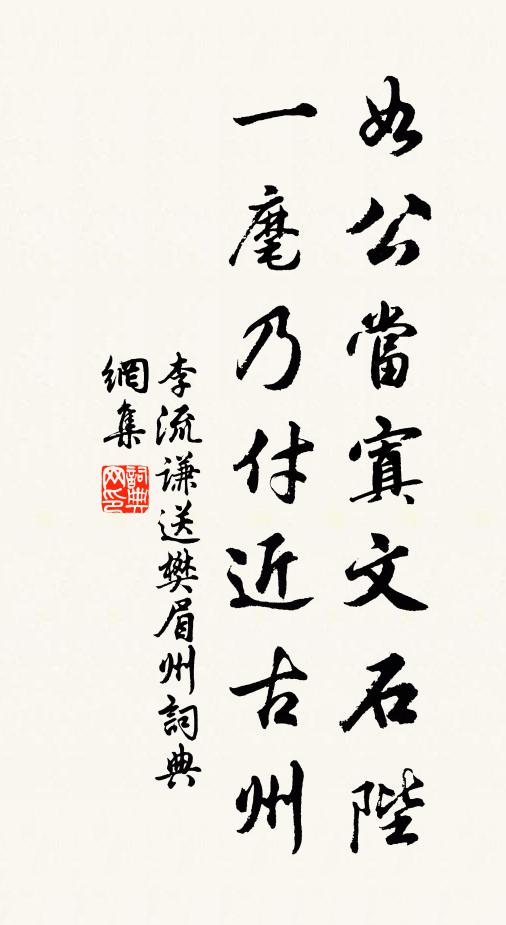 如公當寘文石陛
一麾乃付近古州
李流謙送樊眉州詞典
網集
詞典
网印